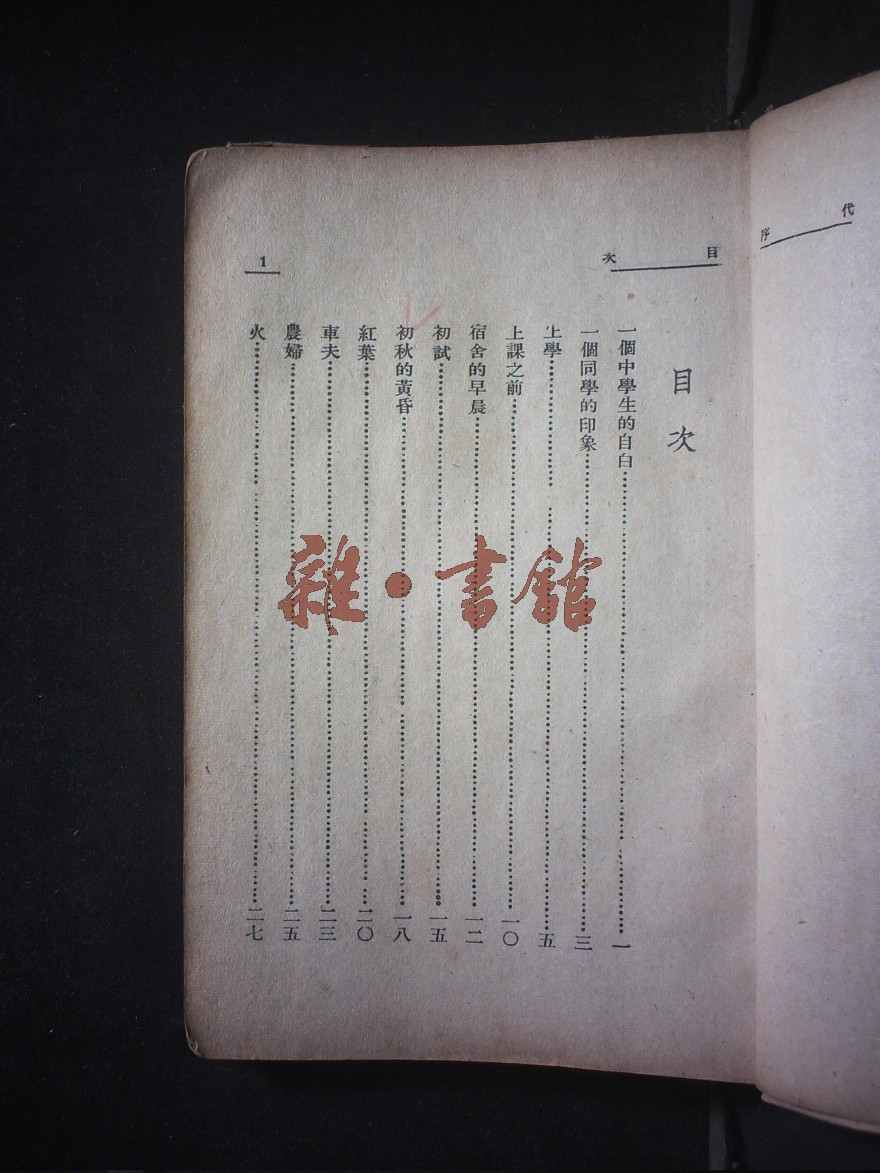 代序
目次
1
目次
一個中學生的自白一
一個同學的印象三
上學五
上課之前一〇
宿舍的早晨一二
初試一五
初秋的黃昏一八
紅葉二〇
車夫二三
農婦二五
火二七
雜·書館